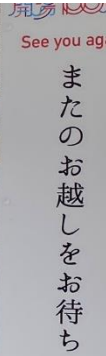 See you
またのお越しをお待ち